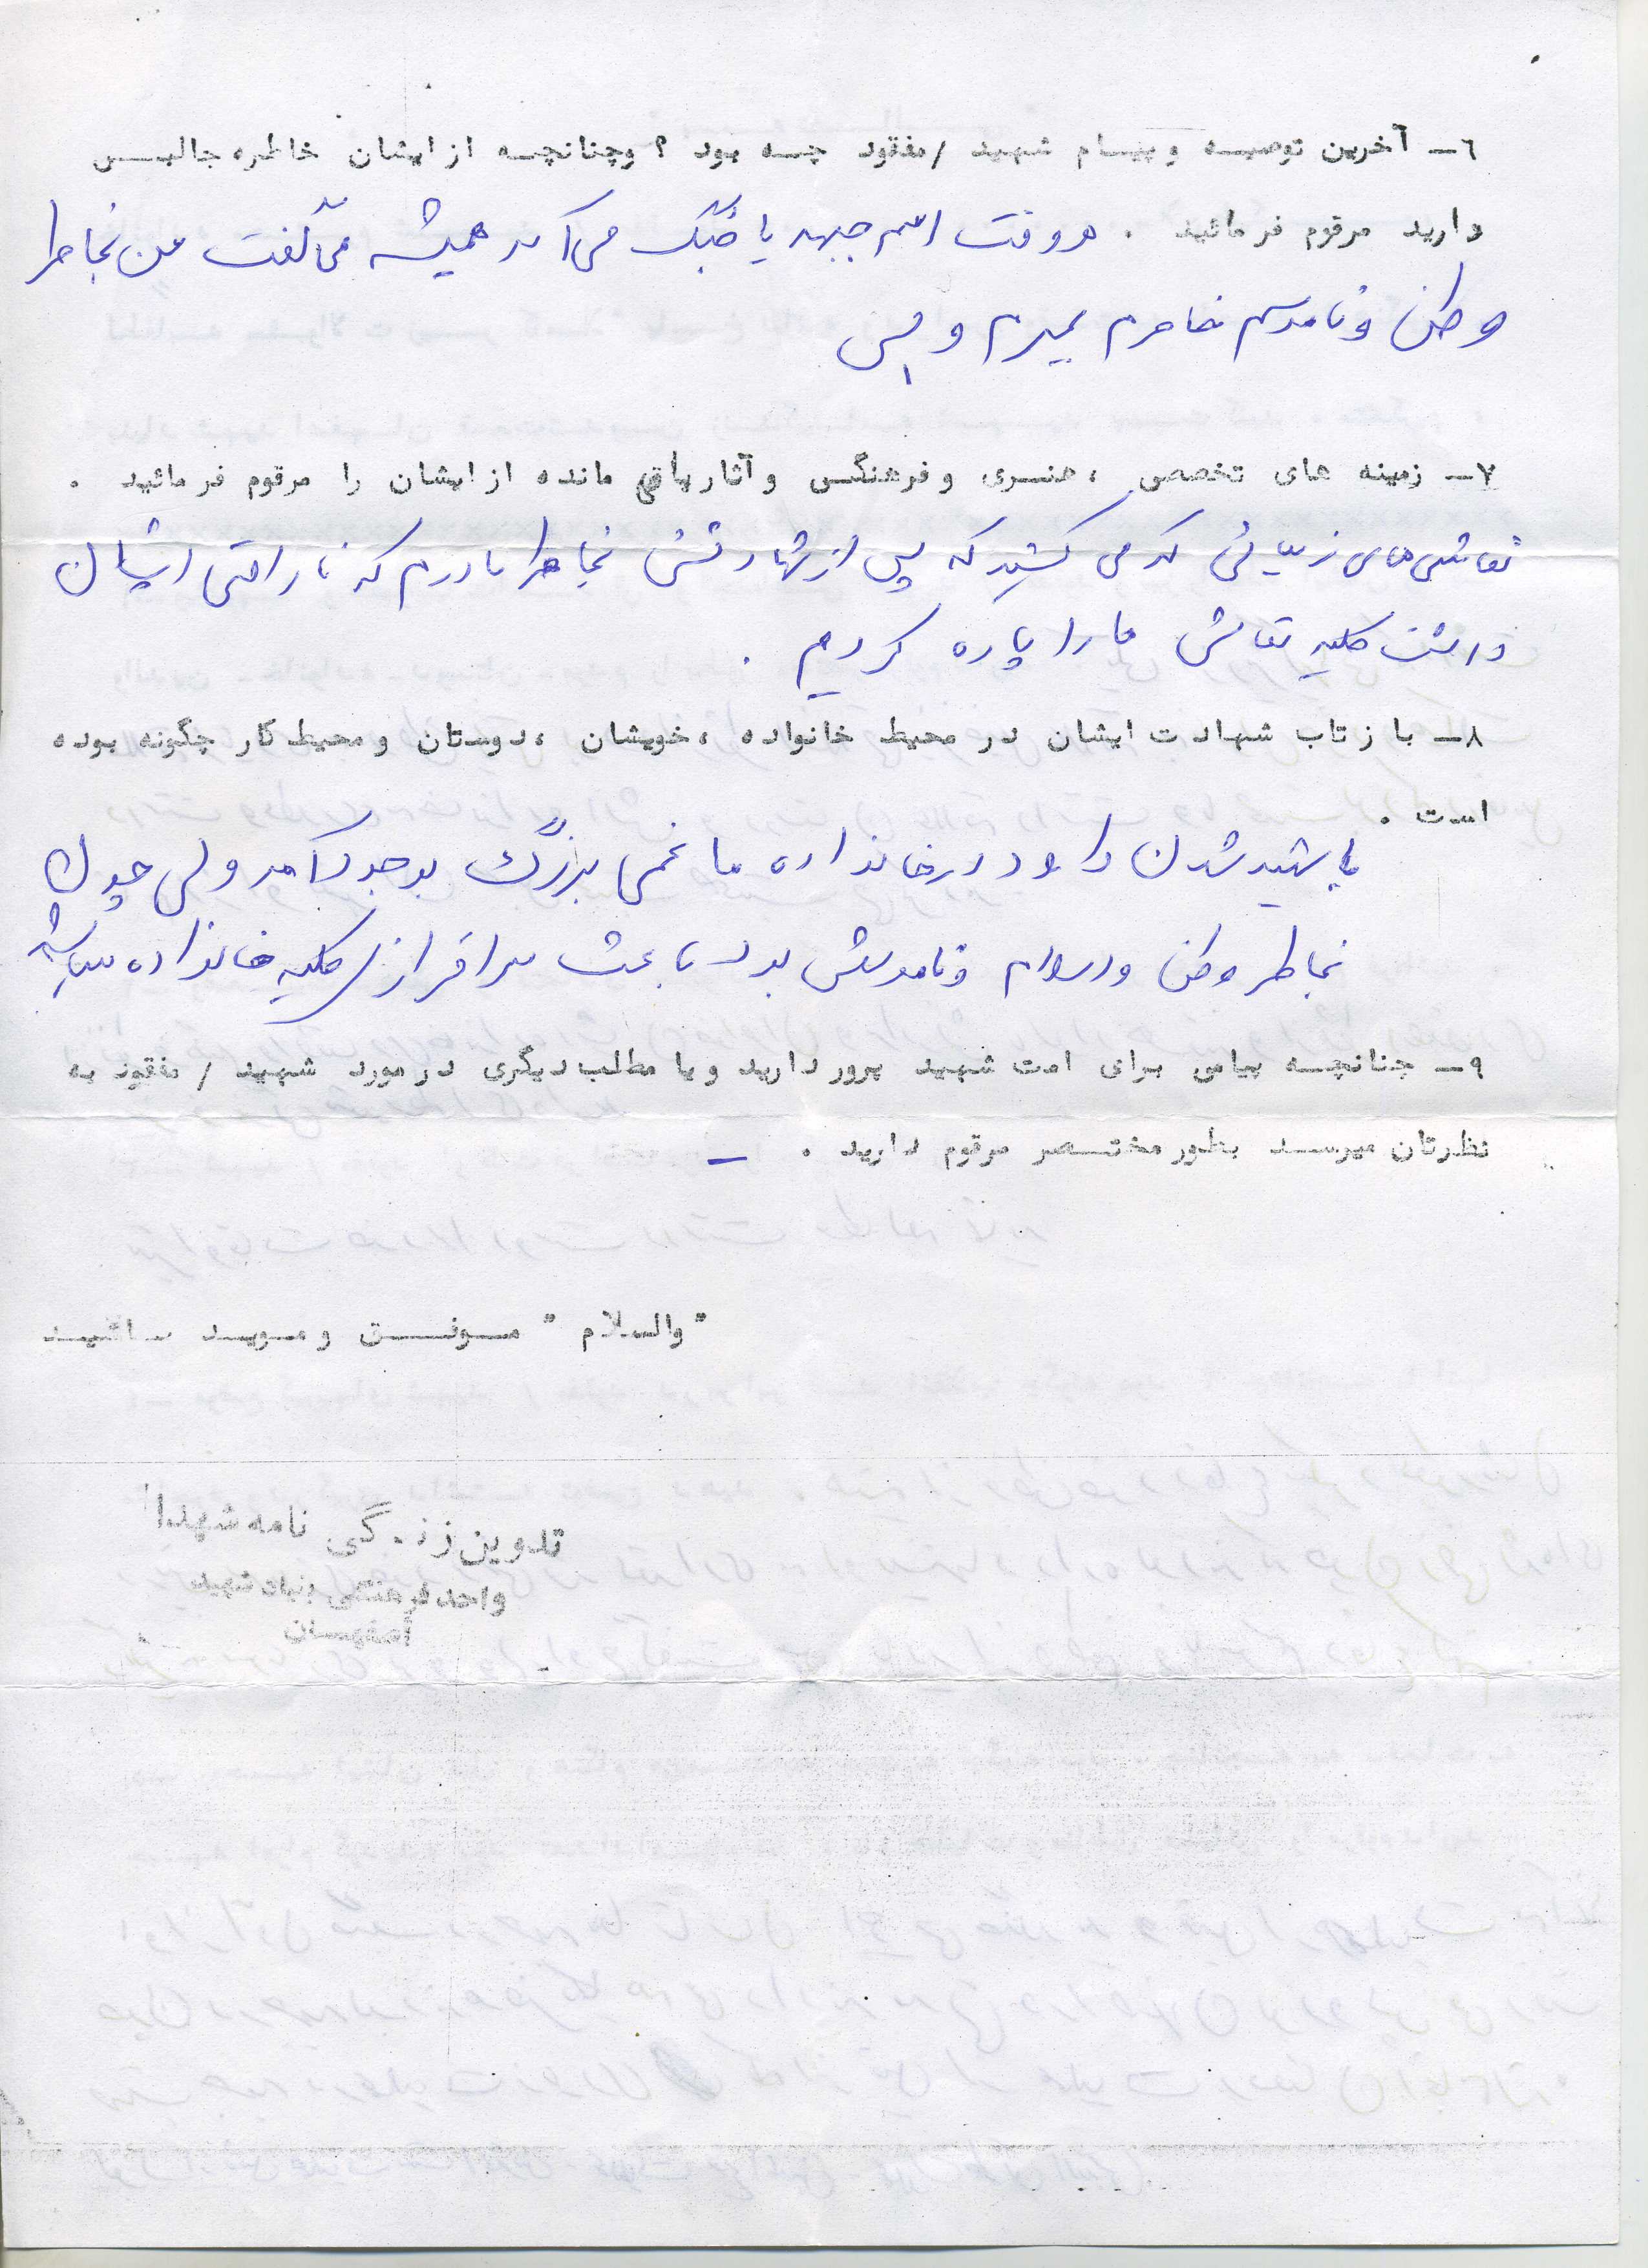 ۶ــ آخرین توصیــه و پیــام شهید /مفقود چــه بود ؟ وچنانچــه از ایشان خاطره جالبــی
دارید مرقوم فرمائید . هر وقت اسم جبهه یا جنگ می آمد همیشه می گفت من بخاطر
وطن و ناموسم می‌خواهم بمیرم و بس
۷ــ زمینه های تخصصی ، هنــری و فرهنگــی و آثار باقی مانده از ایشان را مرقوم فرمائید .
نقاشی های زیبائی که می کشید که پس از شهادتش بخاطر مادرم که ناراحتی ایشان
داشت کلیه نقاشی ها را پاره کردیم .
۸ــ با زتاب شهادت ایشان در محیط خانواده ، خویشان ، دوستان و محیط کار چگونه بوده
است .
با شهید شدن داود در خانواده ما غمی بزرگ بوجود آمد ولی چون
بخاطر وطن و اسلام و ناموسش بود باعث سرافرازی کلیه خانواده میباشد
۹ــ چنانچــه پیامی برای امت شهید پرور دارید و یا مطلب دیگری در مورد شهید / مفقود به
نظرتان میرســد بطور مختــصر مرقوم دارید . ــ
" والسلام " مــوفــــق و مــویــد بــاشیــد
تدوین زندگی نامه شهدا
واحد فرهنگی بنیاد شهید
اصفهــان